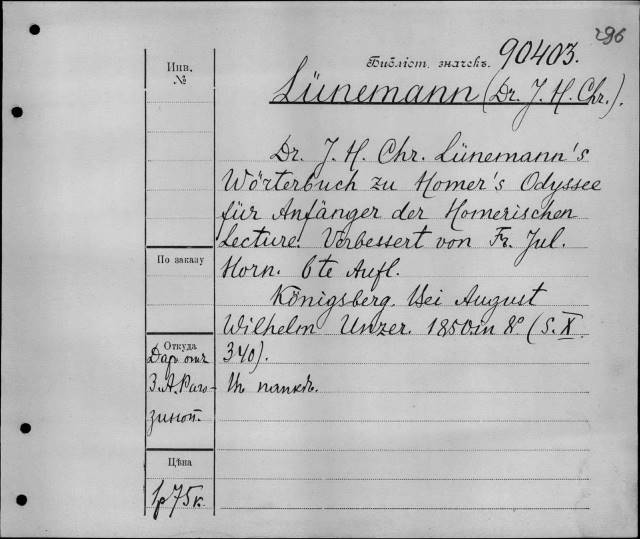 296
Инв.
№
Библіот. значекъ. 90403.
Lünemann (Dr. J. H. Chr.).
Dr. J. H. Chr. Lünemann's
Wörterbuch zu Homer's Odyssee
für Anfänger der Homerischen
Lecture. Verbessert von Fr. Jul.
Horn. 6te Aufl.
Königsberg. Bei August
Wilhelm Unzer. 1850. in 8° (S. X.
340).
Въ папкѣ.
По заказу
Откуда
Даръ отъ
З. А. Раго-
зиной.
Цѣна
1р 75к.